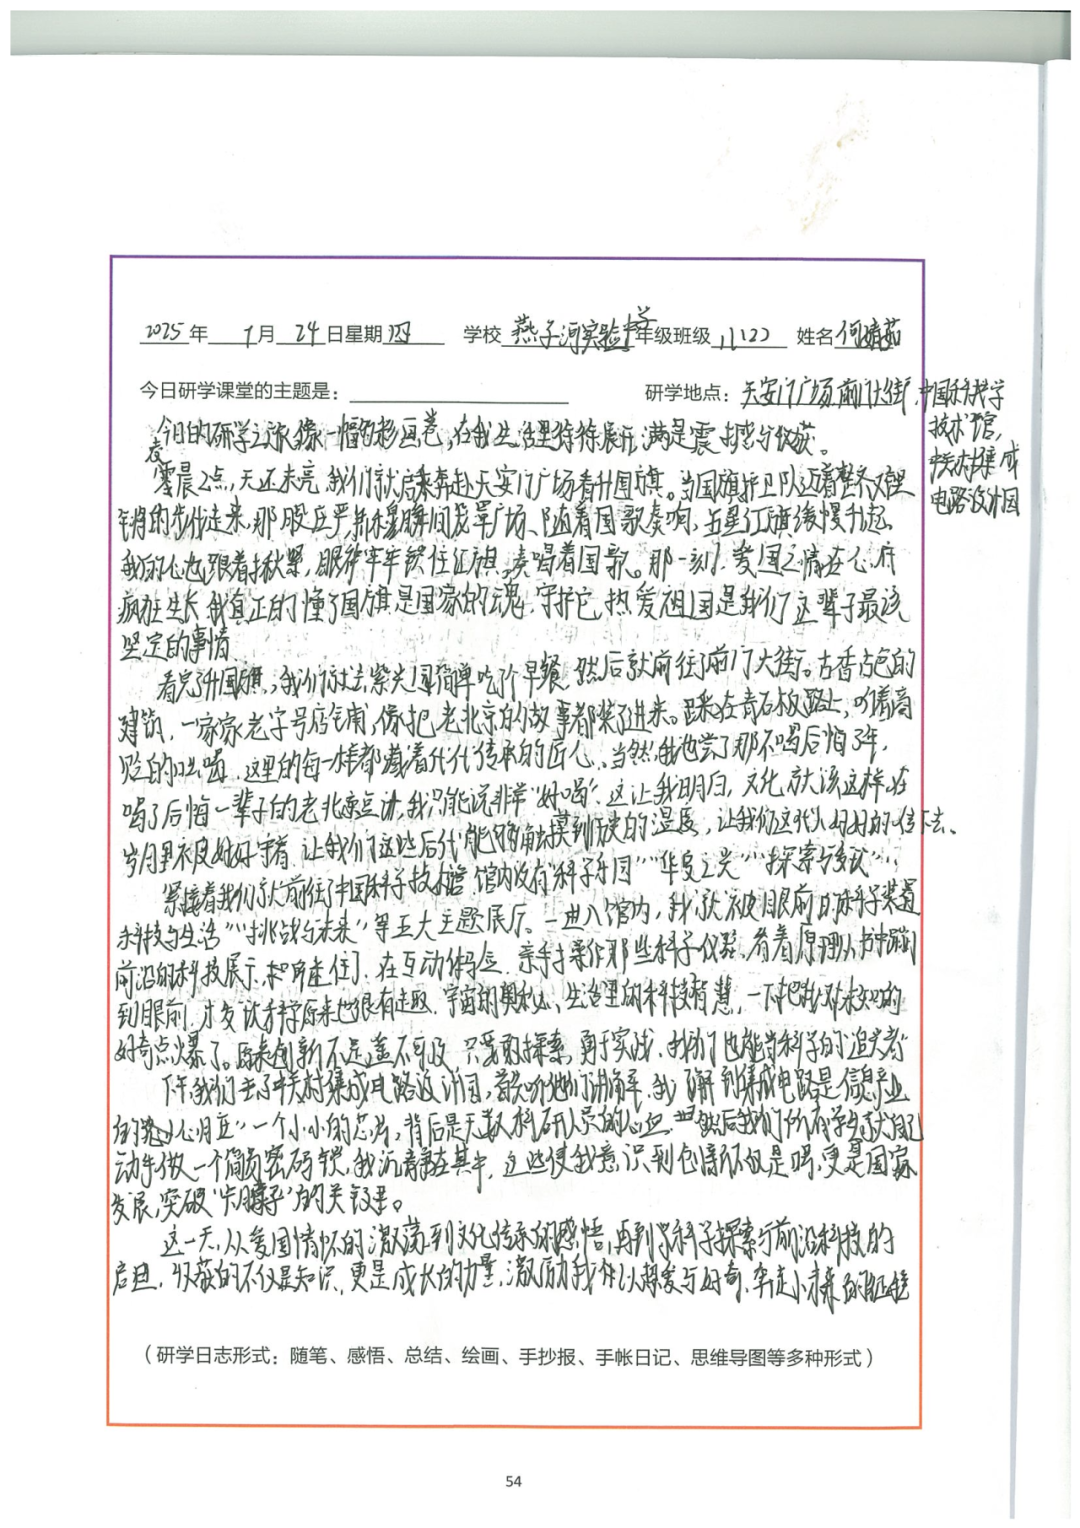 2025年 7月 24日星期四 学校 燕子河实验学 年级班级 八(12) 姓名 何婧茹
今日研学课堂的主题是: 研学地点: 天安门广场,前门大街,中国科学
技术馆,
村集成
电路设计园
今日的研学之旅像一幅的彩画卷,在我生活里徐徐展开,满是震撼与收获。
凌晨2点,天还未亮,我们就启乘奔赴天安门广场看升国旗。当国旗护卫队迈着整齐
锵的步伐走来,那股庄严肃穆瞬间笼罩广场、随着国歌奏响,五星红旗缓慢升起,
我的心也跟着揪紧,眼神牢牢锁住红旗,唱着国歌。那一刻,爱国之情在心府
疯狂生长,我真正的懂了国旗是国家的魂,守护它,热爱祖国是我们这辈子最该
坚定的事情
看完升国旗,我们就去紫光园简单吃个早餐,然后就前往了前门大街。古香古色的
建筑,一家家老字号店铺,像把老北京的故事都装了进来。踩在青石板路上,听着高
的吆喝,这里的每一样都藏着代代传承的匠心、当然,我也尝了那不喝后悔3年,
喝了后悔一辈子的老北京豆汁,我只能说非常“好喝”,这让我明白,文化就该这样在
岁月里被好好守着,让我们这些后代能够触摸到历史的温度,让我们这代人好好的传下去、
紧接着我们就前往了中国科学技术馆,馆内设有“科学乐园”“华夏之光”“探索与发现”“
科技与生活”“挑战与未来”等五大主题展厅。一进入馆内,我就被眼前的科学装置
前沿的科技展示、迷住了,在互动体验,亲手操作那些科学仪器、看着原理从书中蹦
到眼前,才发认科学原来也很有趣,宇宙的奥秘,生活里的科技智慧,一下把我对未知的
好奇点爆了。原来创新不是遥不可及,只要勇探索,勇于实践,我们也能当科学的“追光者”
下午,我们去了中关村集成电路设计园,聆听他们讲解,我了解到集成电路是信息产业
的“心脏”一个小小的芯片,背后是无数科研人员的心血,然后我们所有学生去了自己
动手做一个简易密码锁,我沉静在其中,这些使我意识到创新不仅是喝,更是国家
发展,突破“卡脖子”的关键。
这一天,从爱国情怀的激荡,到文化传承的感悟,再到学科学探索与前沿科技的
启迪,收获的不仅是知识,更是成长的力量,激励我们以热爱与好奇,奔走小未来的征程
(研学日志形式:随笔、感悟、总结、绘画、手抄报、手帐日记、思维导图等多种形式)
54